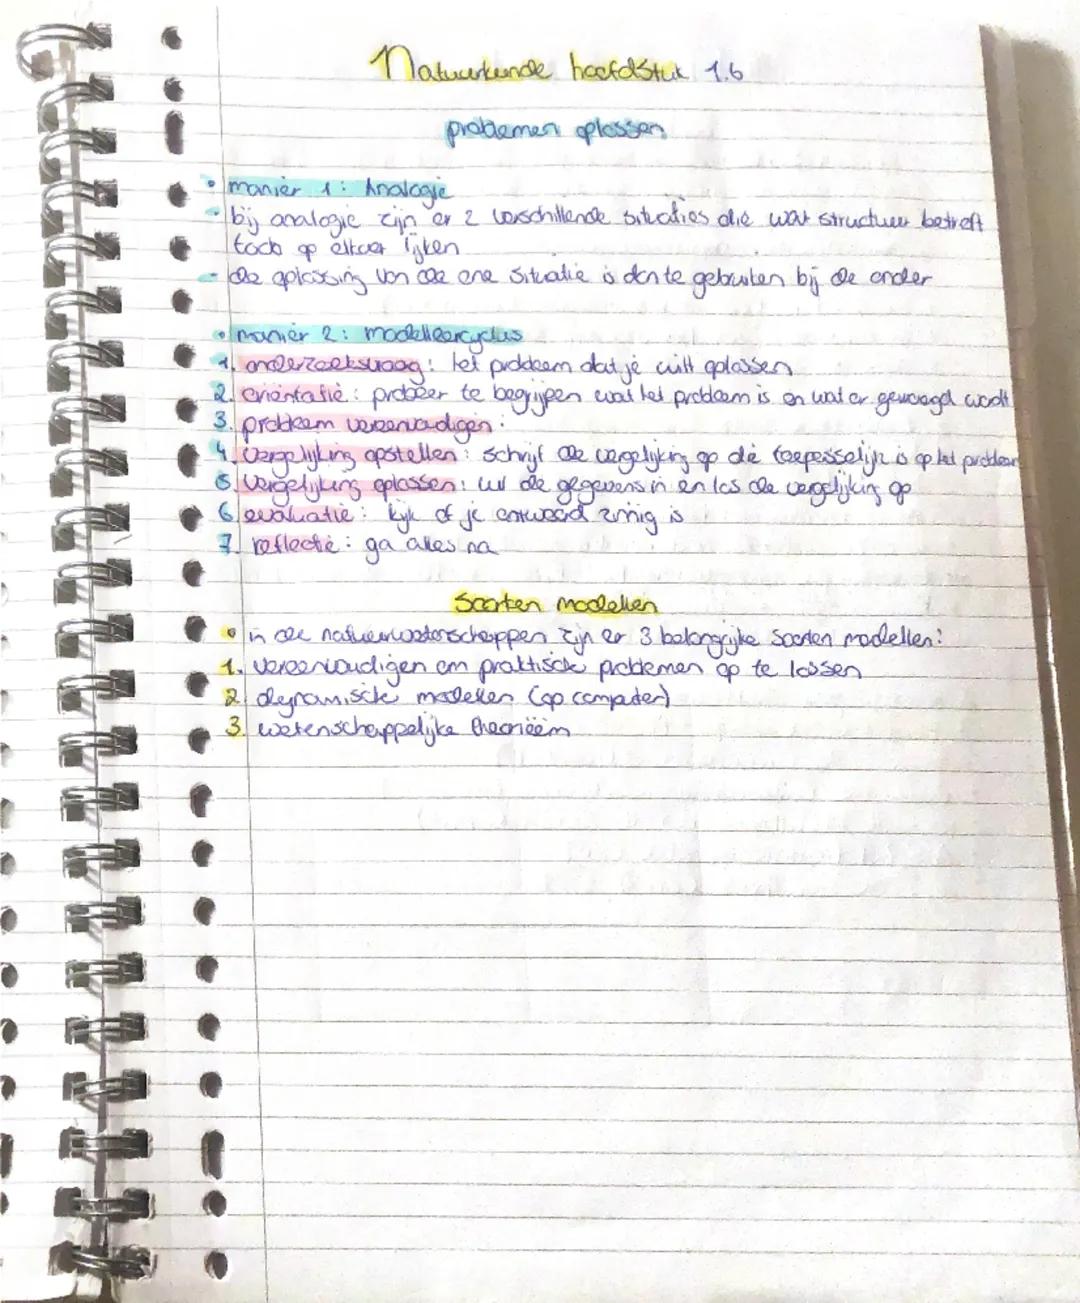 Natuurkunde hoofdstuk 1.6
problemen oplossen
• manier 1: Analogie
- bij analogie zijn er 2 verschillende situaties die wat structuur betreft
toch op elkaar lijken
- de oplossing van de ene situatie is dan te gebruiken bij de ander
• manier 2: modelleercyclus
1. onderzoeksvraag: het probleem dat je wilt oplossen
2. oriëntatie: probeer te begrijpen wat het probleem is en wat er gevraagd wordt
3. probleem vereenvoudigen:
4. vergelijking opstellen: schrijf de vergelijking op die toepasselijk is op het probleem
5. vergelijking oplossen: vul de gegevens in en los de vergelijking op
6. evaluatie: kijk of je antwoord zinnig is
7. reflectie: ga alles na
Soorten modellen
• in de natuurwetenschappen zijn er 3 belangrijke soorten modellen:
1. vereenvoudigen om praktische problemen op te lossen
2. dynamische modellen (op computer)
3. wetenschappelijke theorieën